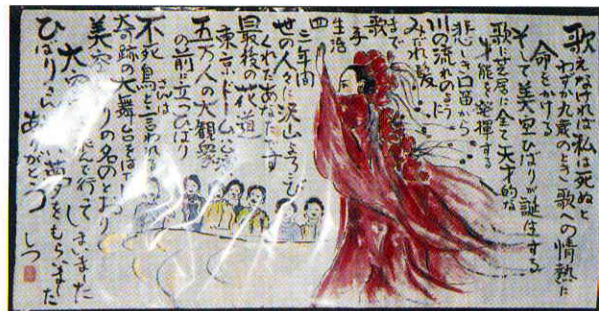 歌えなければ私は死ぬと
わずか九歳のとき歌への情熱に
命をかける
そして美空ひばりが誕生する
歌に芝居に全て天才的な
才能を発揮する
悲しき口笛から
川の流れのように
みだれ髪
まで
歌手
生活
四
三年間
世の人々に沢山よろこび
くれたあなたです
最後の花道
東京ドーム公演
五万人の大観衆
の前に立つひばり
さんは
不死鳥と言われる
奇跡の大舞台をは
美空 りの名のとおり
大空 飛んで行ってしまいました
夢 をもらいました
ひばりさん ありがとう
しづ